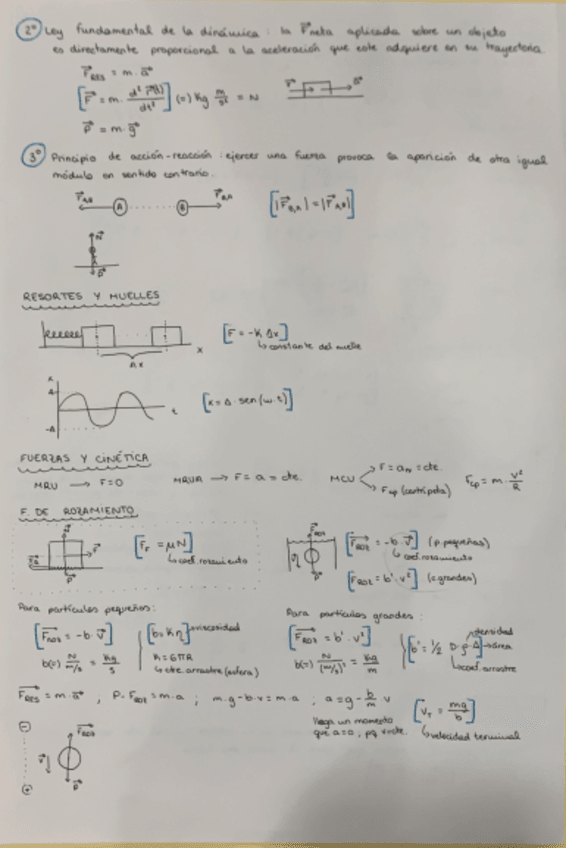 2º Ley fundamental de la dinámica : la F⃗neta aplicada sobre un objeto
es directamente proporcional a la aceleración que este adquiere en su trayectoria
F⃗RES = m · a⃗
[F⃗ = m · d² r⃗(t) / dt²] (=) Kg m/s² = N
F⃗ a⃗
p⃗ = m · g⃗
3º Principio de acción-reacción : ejercer una fuerza provoca la aparición de otra igual
módulo en sentido contrario.
F⃗A,B A B F⃗B,A [|F⃗B,A| = |F⃗A,B|]
N⃗
P⃗
RESORTES Y MUELLES
[F = -K Δx]
↳ constante del muelle
Δx x
x
A
-A
t
[x = A · sen(w · t)]
FUERZAS Y CINÉTICA
MRU → F=0 MRUA → F = a = cte. MCU F = am = cte. Fcp (centrípeta) Fcp = m · v²/R
F. DE ROZAMIENTO
N⃗ F⃗ P⃗
[Fr = μN]
↳ coef. rozamiento
F⃗ROZ v⃗ P⃗
[F⃗ROZ = -b · v⃗] (p. pequeñas)
↳ coef. rozamiento
[FROZ = b' · v²] (c grandes)
Para partículas pequeñas :
[F⃗ROZ = -b · v⃗] [b = K η] → viscosidad
b(=) N / m/s = Kg / s K = 6πR
↳ cte. arrastre (esfera)
Para partículas grandes :
[F⃗ROZ = b' · v²] [b' = 1/2 D · ρ · A] densidad → área
b(=) N / (m/s)² = Kg / m ↳ coef. arrastre
F⃗RES = m · a⃗ ; P - FROZ = m · a ; m · g - b · v = m · a , a = g - b/m v
llega un momento
que a = 0, pq v = cte.
[vT = mg / b]
↳ velocidad terminal
⊖ F⃗ROZ
v⃗
⊕ P⃗